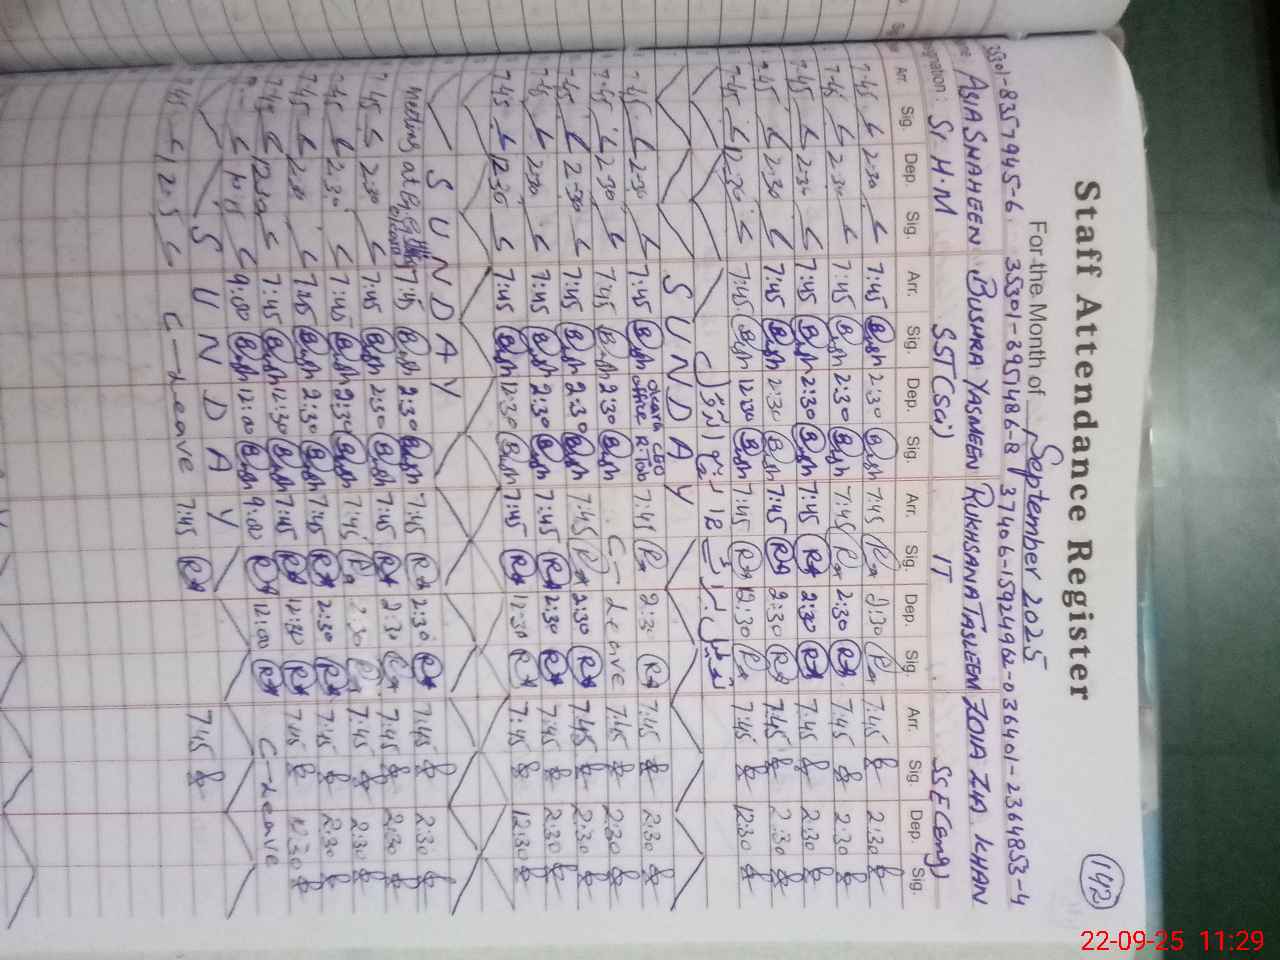 Staff Attendance Register
142
For the Month of September 2025
35301-8357945-6 35301-3951486-8 37406-1592496-2 -036401-2364853-4
ASIA SHAHEEN BUSHRA YASMEEN RUKHSANA TASLEEM ZOIA ZIA KHAN
Sr H.M SST(sci) IT SSE(eng)
Arr. Sig. Dep. Sig. Arr. Sig. Dep. Sig. Arr. Sig. Dep. Sig. Arr. Sig. Dep. Sig.
7:45 2:30 7:45 Bush 2:30 Bush 7:45 2:30 7:45 2:30
7:45 2:30 7:45 Bush 2:30 Bush 7:45 2:30 7:45 2:30
7:45 2:30 7:45 Bush 2:30 Bush 7:45 2:30 7:45 2:30
7:45 2:30 7:45 Bush 2:30 Bush 7:45 2:30 7:45 2:30
7:45 12:30 7:45 Bush 12:30 Bush 7:45 12:30 7:45 12:30
12
SUNDAY
7:45 2:30 7:45 Bush CEO office 7:45 2:30 7:45 2:30
7:45 2:30 7:45 Bush 2:30 Bush C-Leave 7:45 2:30
7:45 2:30 7:45 Bush 2:30 Bush 7:45 2:30 7:45 2:30
7:45 2:30 7:45 Bush 2:30 Bush 7:45 2:30 7:45 2:30
7:45 12:30 7:45 Bush 12:30 Bush 7:45 12:30 7:45 12:30
SUNDAY
Meeting at 7:45 Bush 2:30 Bush 7:45 2:30 7:45 2:30
7:45 2:30 7:45 Bush 2:30 Bush 7:45 2:30 7:45 2:30
7:45 2:30 7:45 Bush 2:30 Bush 7:45 2:30 7:45 2:30
7:45 2:30 7:45 Bush 2:30 Bush 7:45 2:30 7:45 2:30
7:45 12:30 7:45 Bush 12:30 Bush 7:45 12:30 7:45 12:30
9:00 Bush 12:00 Bush 9:00 12:00 C-Leave
SUNDAY
7:45 C-Leave 7:45 7:45
22-09-25 11:29